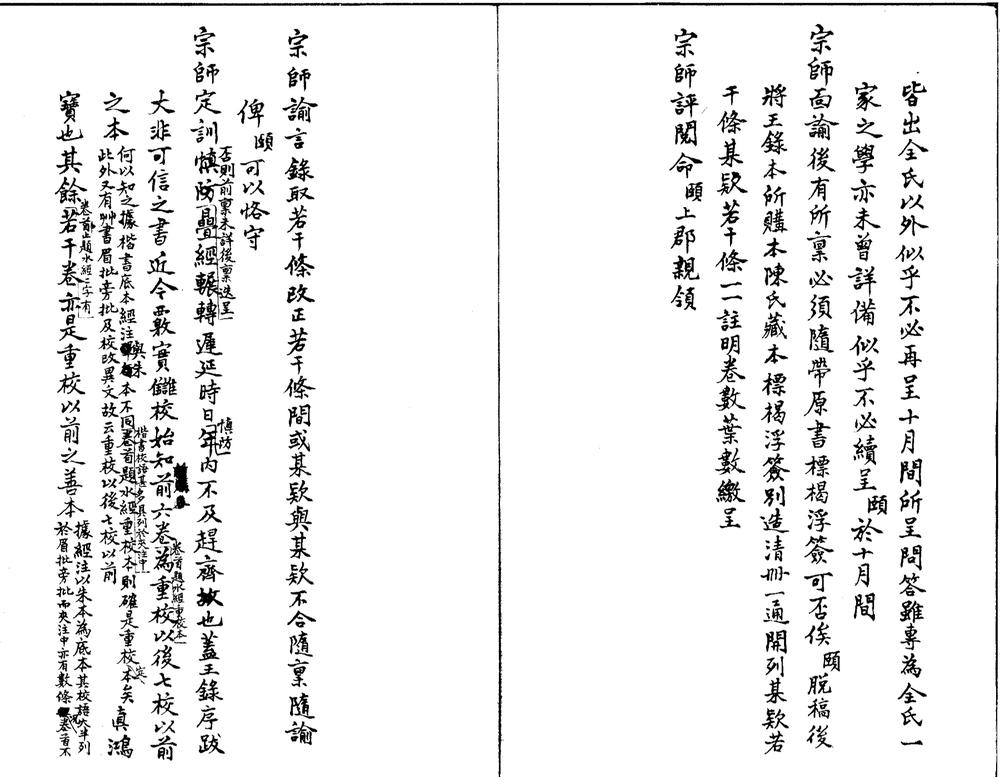 皆出全氏以外似乎不必再呈十月間所呈問答雖專為全氏一
家之學亦未曾詳備似乎不必續呈頤於十月間
宗師面諭後有所稟必須隨帶原書標楬浮簽可否俟頤脫稿後
將王錄本所購本陳氏藏本標楬浮簽別造清冊一通開列某欵若
干條某欵若干條一一註明卷數葉數繳呈
宗師評閱命頤上郡親領
宗師諭言錄取若干條改正若干條間或某欵與某欵不合隨稟隨諭
俾頤可以恪守
宗師定訓慎防疊經輾轉遲延時日年內不及趕齊故也蓋王錄序跋
否則前稟未詳後稟迭呈
慎防
大非可信之書近今覈實讎校始知前六卷為重校以後七校以前
卷首題水經重校本
之本何以知之據楷書底本經注與朱本不同卷首題水經重校本則確是重校定本矣真鴻
此外又有艸書眉批旁批及校改異文故云重校以後七校以前
楷書校語甚多具列於夾注中
寶也其餘若干卷亦是重校以前之善本據經注以朱本為底本其校語大半列
卷首止題水經二字有
於眉批旁批而夾注中亦有數條卷首不